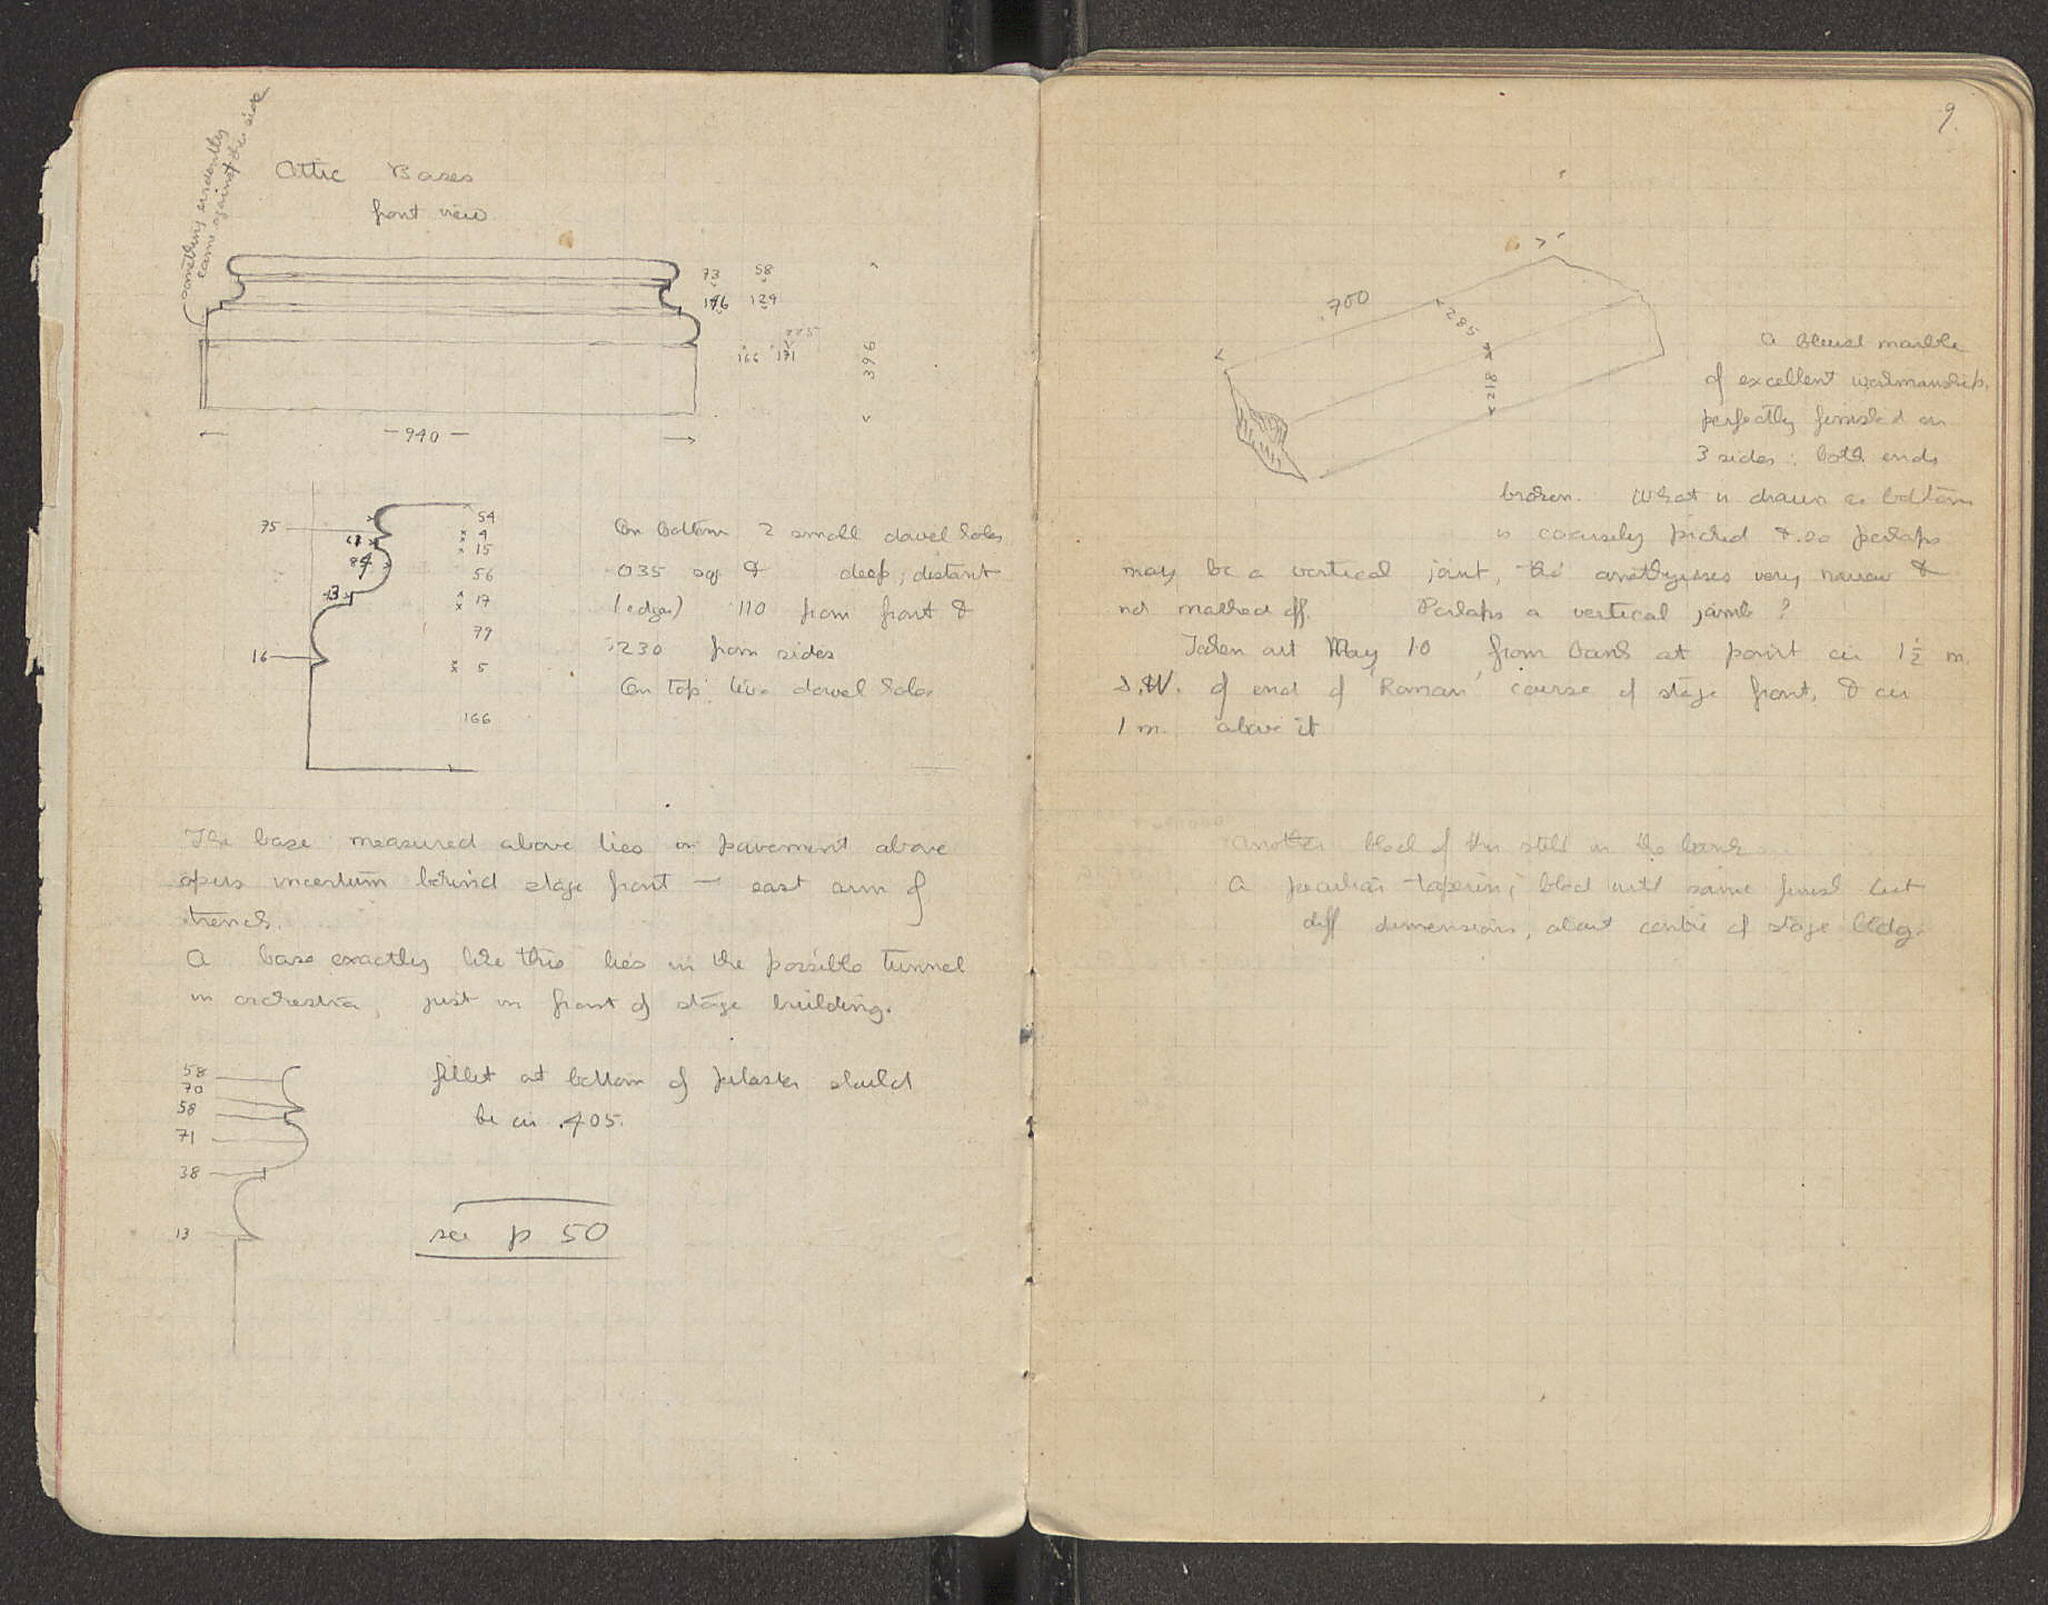 something evidently
came against the side
Attic Bases
front view
73 58
146 129
225
166 171
396
940
75
54
4
15
84
56
13
17
79
16
5
166
On bottom 2 small dowel holes
.035 sq & deep; distant
(edges) .110 from front &
.230 from sides
On top: two dowel holes
The base measured above lies on pavement above
opus incertum behind stage front — east arm of
trench.
A base exactly like this lies in the possible tunnel
in orchestra, just in front of stage building.
58
70
58
71
38
13
fillet at bottom of pilaster should
be ca .405.
see p 50
9.
.700
.285
.218
A blueish marble
of excellent workmanship,
perfectly finished on
3 sides; both ends
broken. What is drawn as bottom
is coarsely picked & so perhaps
may be a vertical joint, the anathyrosis very narrow &
not marked off. Perhaps a vertical jamb?
Taken out May 10 from bank at point ca 1½ m.
S.W. of end of 'Roman' course of stage front, & ca
1 m. above it
Another block of this still in the bank
A peculiar tapering block with same finish but
diff dimensions, about centre of stage bldg.